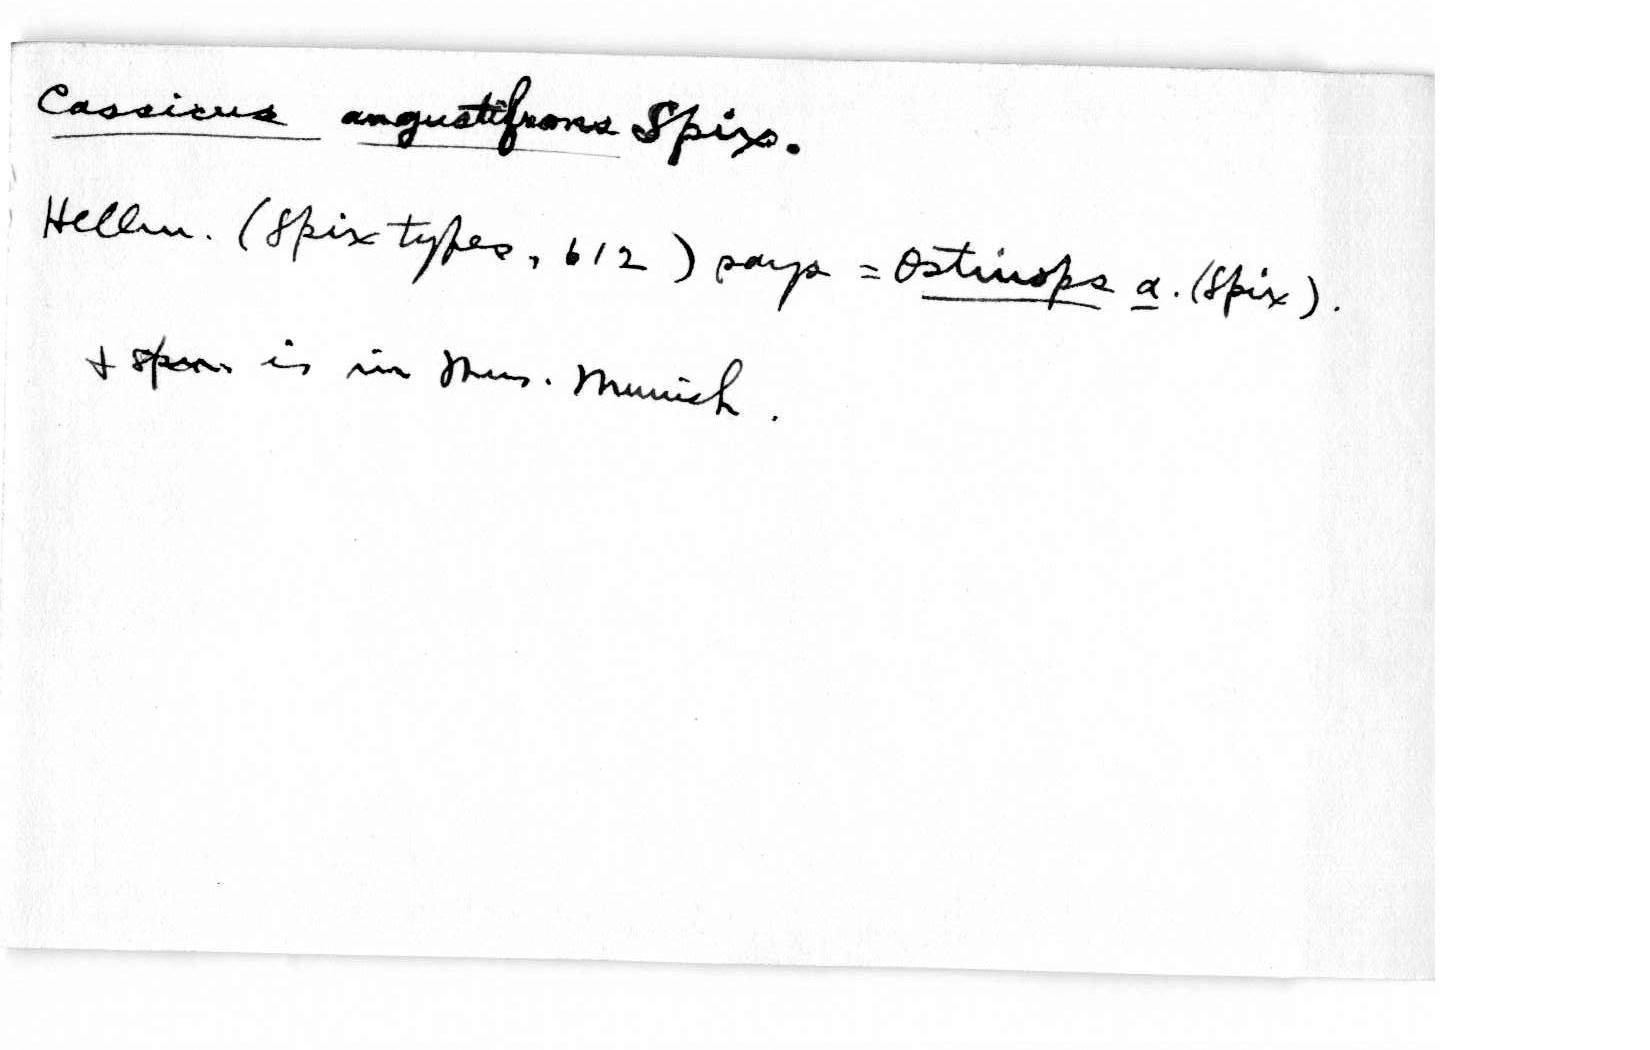 Cassicus angustifrons Spix.
Hellm. (Spix types, 612) says = Ostinops a. (Spix).
+ spm. is in Mus. Munich.